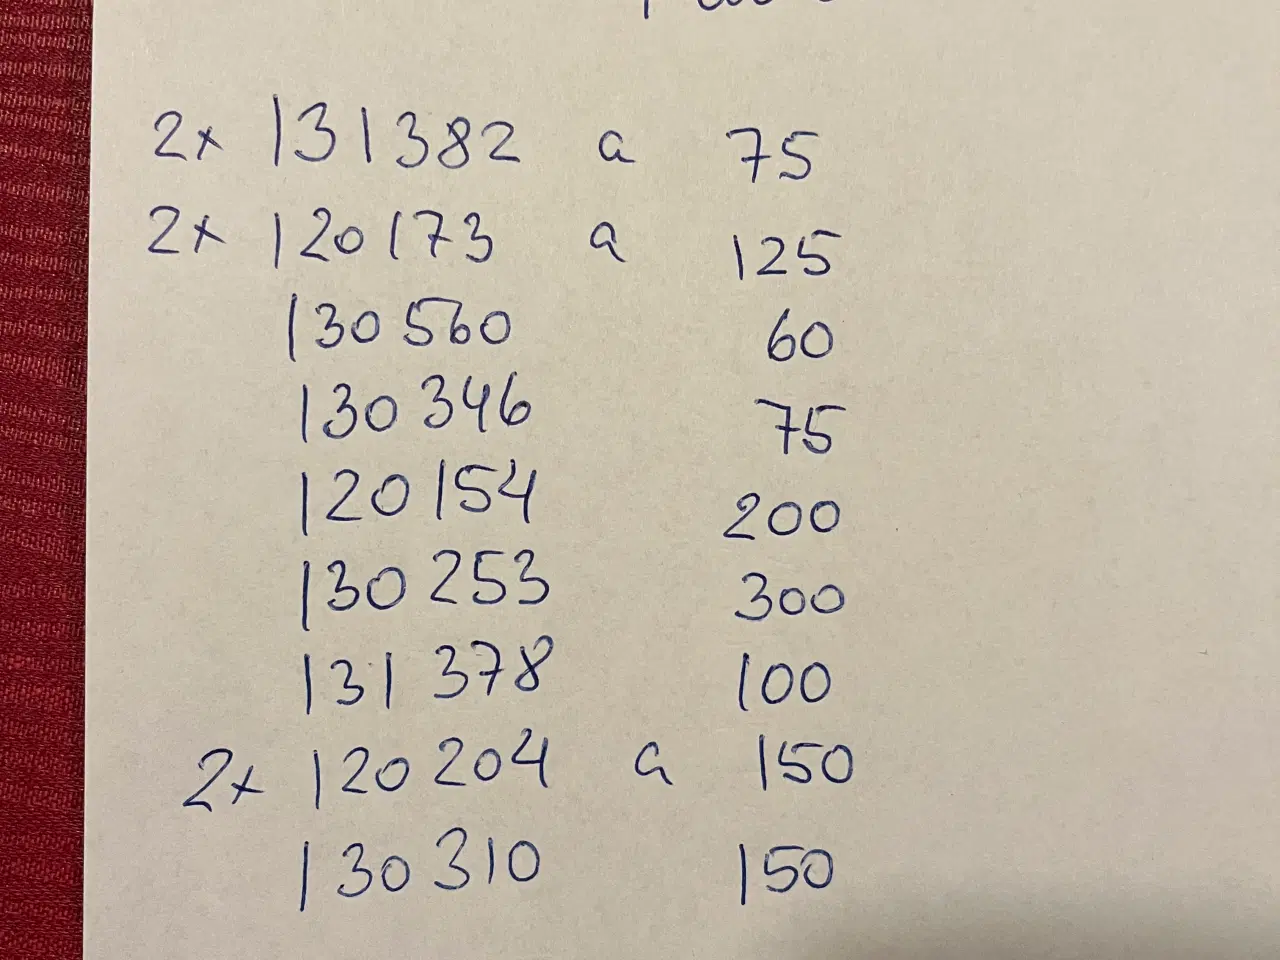 2x 131382 a 75
2x 120173 a 125
130 560 60
130 346 75
120 154 200
130 253 300
131 378 100
2x 120 204 a 150
130 310 150